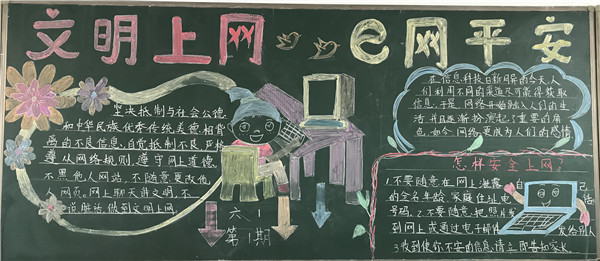 文明上网 e网平安
坚决抵制与社会公德
和中华民族优秀传统美德相背
离的不良信息,自觉抵制不良严格
遵从网络规则,遵守网上道德,
不黑他人网站,不随意更改他
人网页,网上聊天讲文明,不
说脏话,做到文明上网.
六1
第1期
在信息科技日新月异的今天,人
们利用不同的渠道尽可能得获取
信息,于是,网络开始融入人们的生
活,并且逐渐扮演起了重要的角
色,如今,网络更成为人们的感情
怎样安全上网?
1.不要随意在网上泄露自己
的全名、年龄、家庭住址、电话
号码.2.不要随意把照片发
到网上或通过电子邮件发给别人
3.收到使你不安的信息,请立即告知家长.